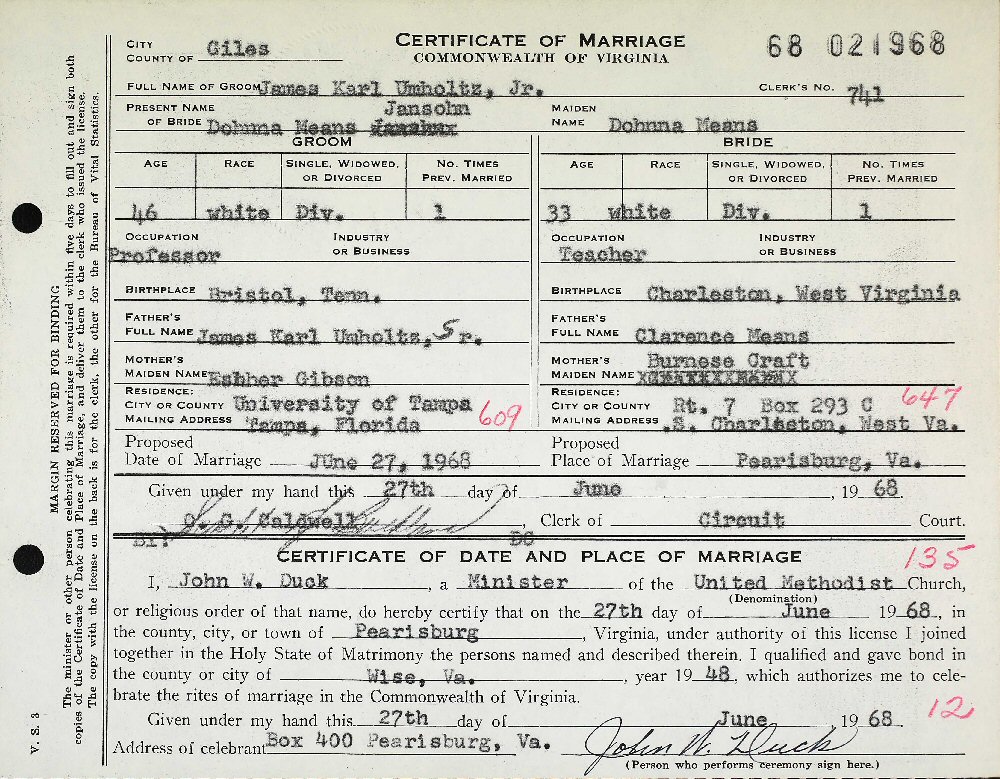 CITY Giles
COUNTY OF
CERTIFICATE OF MARRIAGE
COMMONWEALTH OF VIRGINIA
68 021968
FULL NAME OF GROOM James Karl Umholtz, Jr.
CLERK'S NO. 741
PRESENT NAME Jansohn
OF BRIDE Dohnna Means
MAIDEN
NAME Dohnna Means
GROOM BRIDE
AGE RACE SINGLE, WIDOWED, OR DIVORCED NO. TIMES PREV. MARRIED AGE RACE SINGLE, WIDOWED, OR DIVORCED NO. TIMES PREV. MARRIED
46 white Div. 1 33 white Div. 1
OCCUPATION INDUSTRY OR BUSINESS OCCUPATION INDUSTRY OR BUSINESS
Professor Teacher
BIRTHPLACE Bristol, Tenn. BIRTHPLACE Charleston, West Virginia
FATHER'S FULL NAME James Karl Umholtz, Sr. FATHER'S FULL NAME Clarence Means
MOTHER'S MAIDEN NAME Eshher Gibson MOTHER'S MAIDEN NAME Burnese Craft
RESIDENCE: CITY OR COUNTY University of Tampa RESIDENCE: CITY OR COUNTY Rt. 7 Box 293 C
609 647
MAILING ADDRESS Tampa, Florida MAILING ADDRESS .S. Charleston, West Va.
Proposed Date of Marriage JUne 27, 1968 Proposed Place of Marriage Pearisburg, Va.
Given under my hand this 27th day of June, 1968.
O. G. Caldwell, Clerk of Circuit Court.
BY: DC
CERTIFICATE OF DATE AND PLACE OF MARRIAGE
135
I, John W. Duck, a Minister of the United Methodist Church,
(Denomination)
or religious order of that name, do hereby certify that on the 27th day of June 1968, in
the county, city, or town of Pearisburg, Virginia, under authority of this license I joined
together in the Holy State of Matrimony the persons named and described therein. I qualified and gave bond in
the county or city of Wise, Va., year 1948, which authorizes me to cele-
brate the rites of marriage in the Commonwealth of Virginia.
12
Given under my hand this 27th day of June, 1968.
Address of celebrant Box 400 Pearisburg, Va. John W. Duck
(Person who performs ceremony sign here.)
MARGIN RESERVED FOR BINDING
The minister or other person celebrating this marriage is required within five days to fill out and sign both
copies of the Certificate of Date and Place of Marriage, and deliver them to the clerk who issued the license.
The copy with the license on the back is for the clerk, the other for the Bureau of Vital Statistics.
V. S. 3